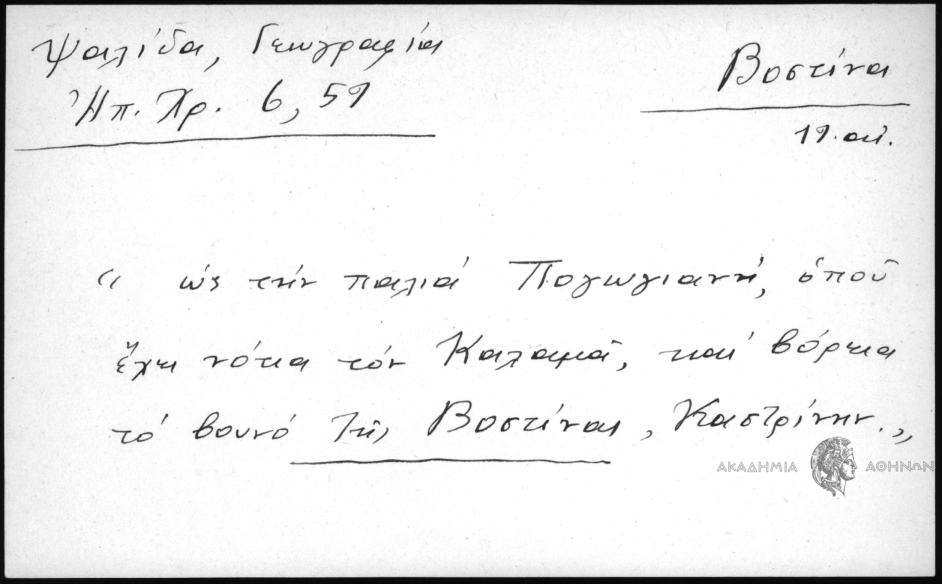 Ψαλίδα, Γεωγραφία
Ἠπ. Χρ. 6, 59
Βοστίνα
19. αἰ.
“ ὡς τήν παλιά Πογωγιανή, ὁποῦ
ἔχει νότια τόν Καλαμᾶ, καί βόρεια
τό βουνό τῆς Βοστίνας, Καστρίνην. „
ΑΚΑΔΗΜΙΑ ΑΘΗΝΩΝ